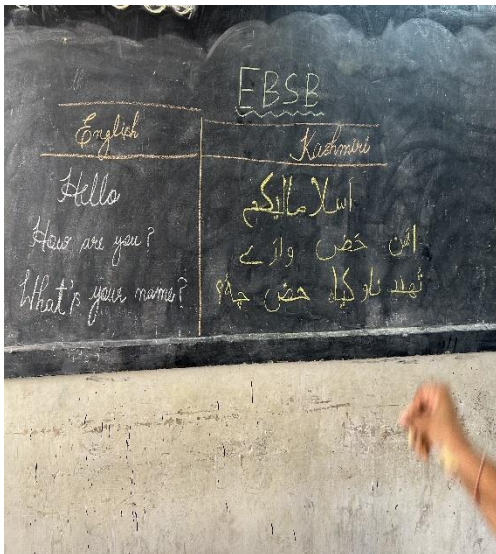 EBSB
English Kashmiri
Hello اسلاماليكم
How are you? حَض وارے
What's your name? تُهند ناو كياه حض چهُ؟